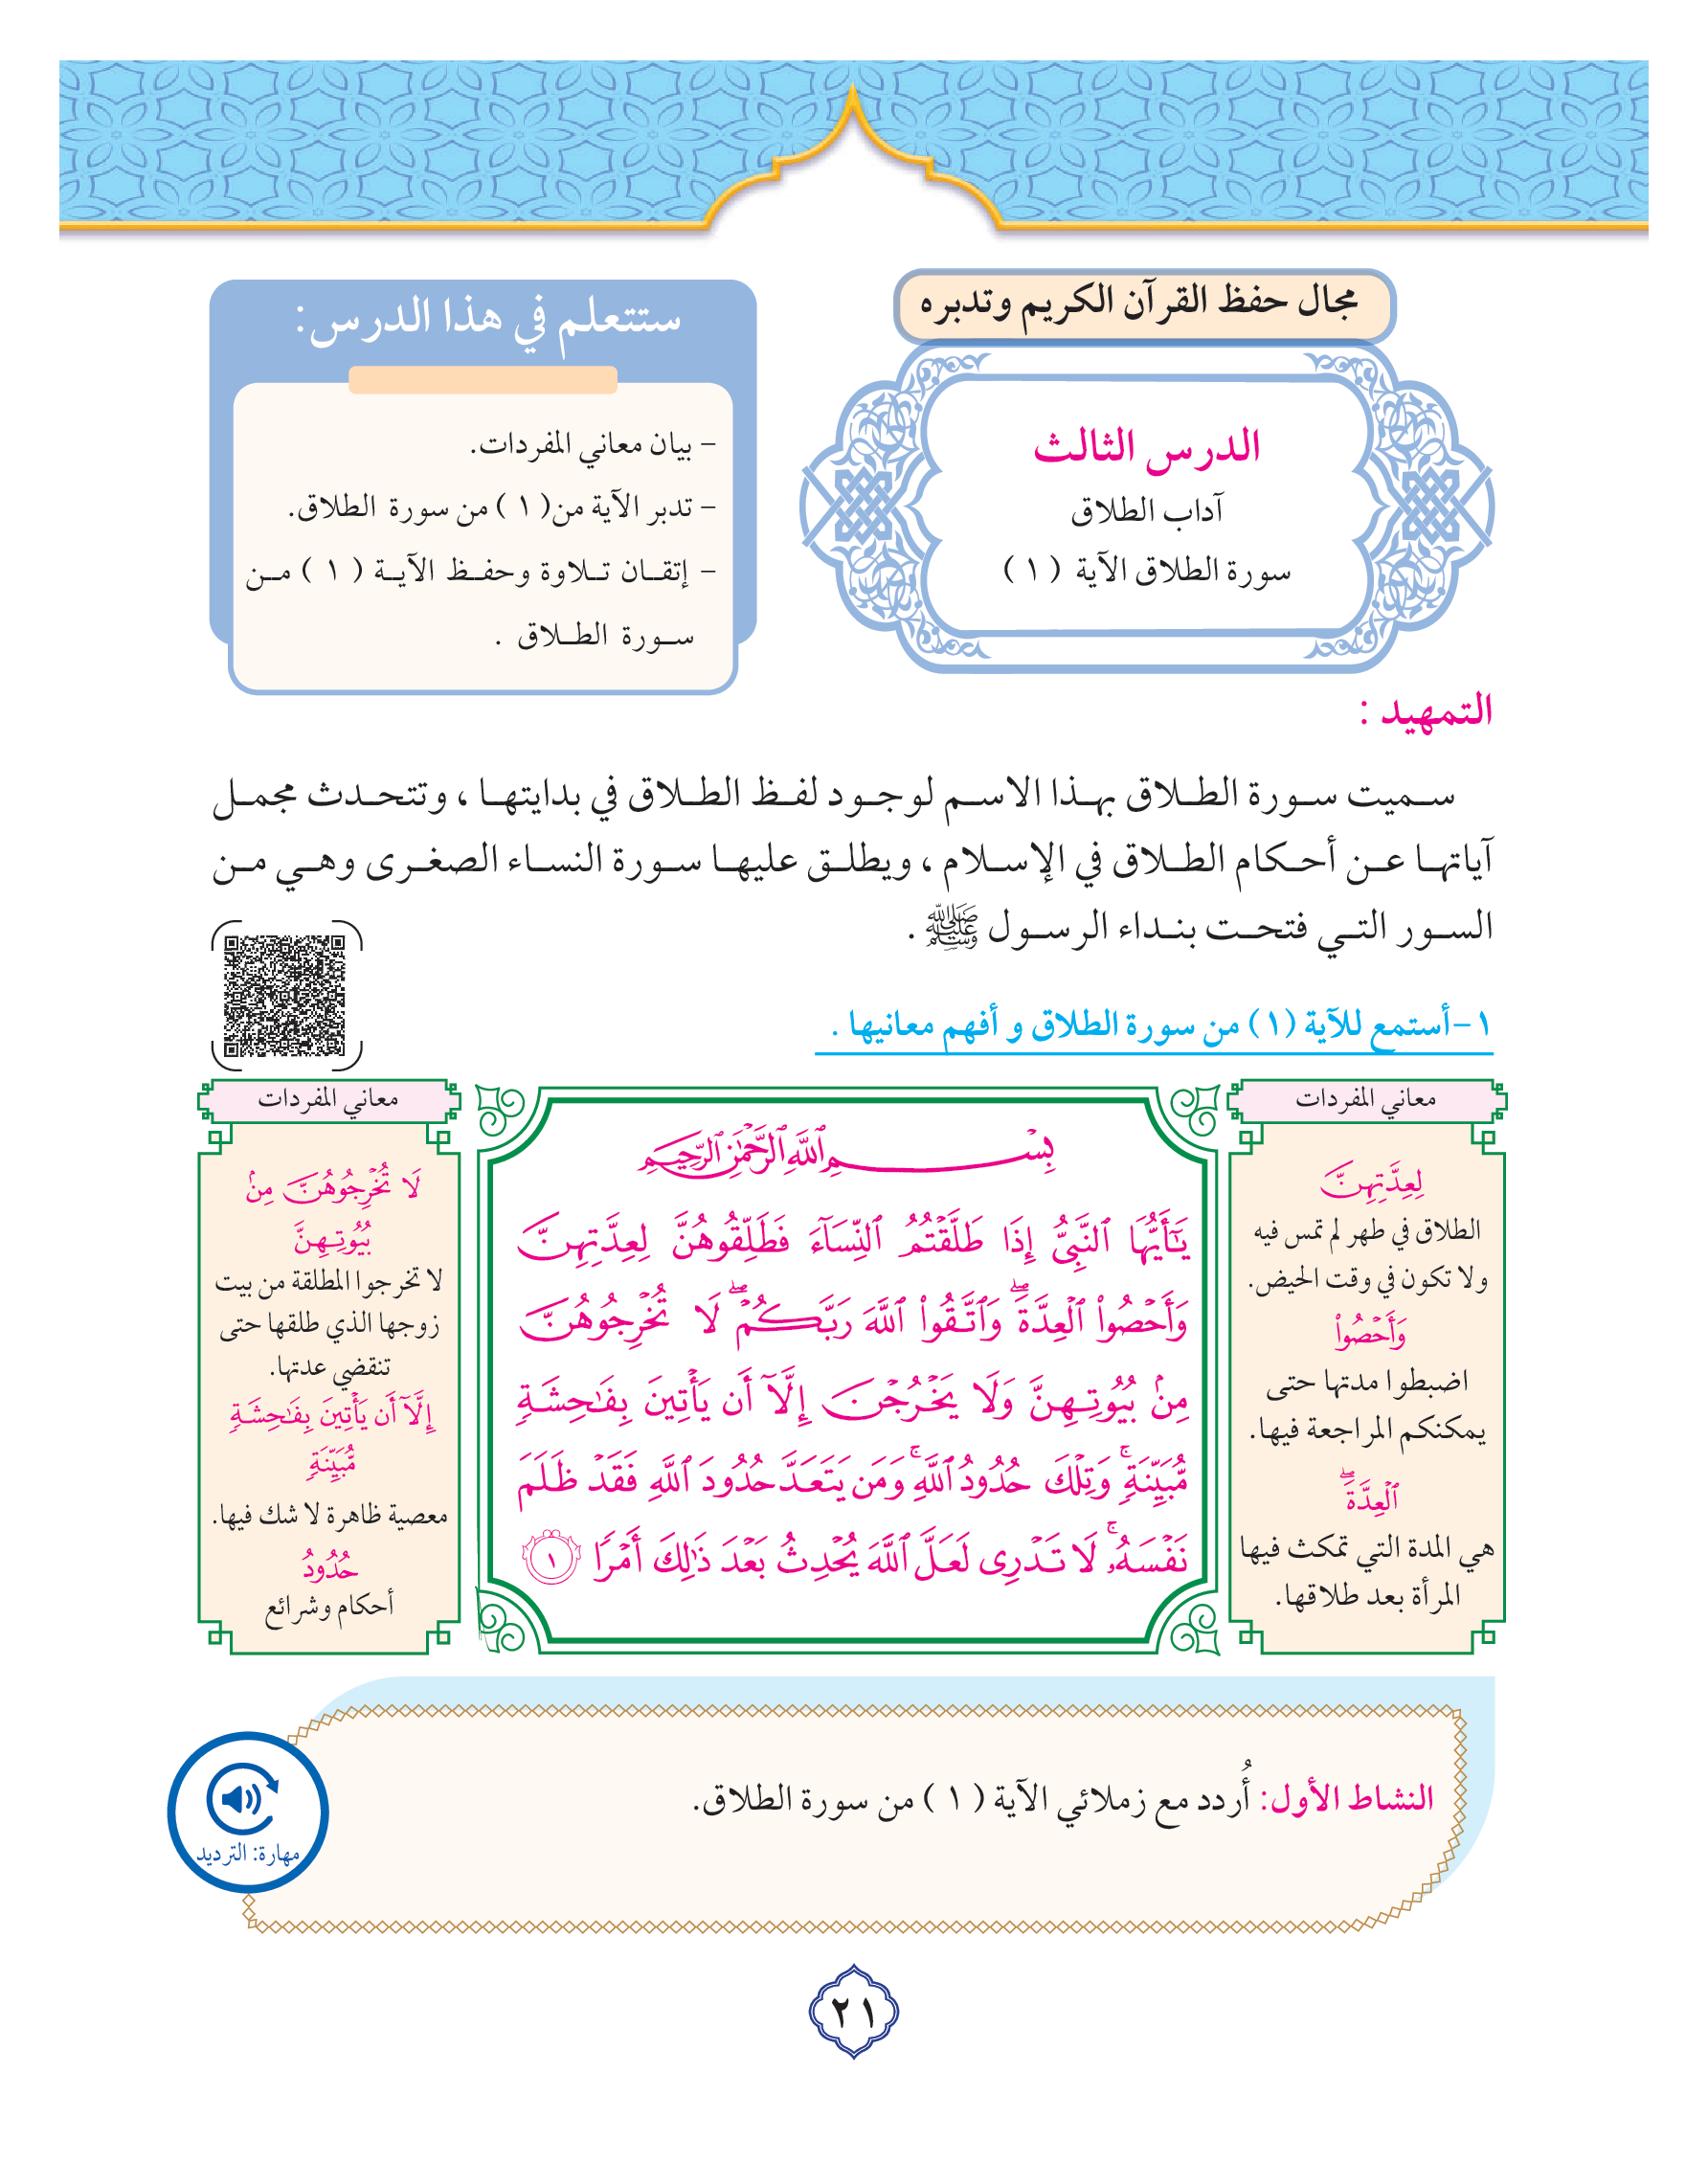 مجال حفظ القرآن الكريم وتدبره
الدرس الثالث
آداب الطلاق
سورة الطلاق الآية ( ١ )
ستتعلم في هذا الدرس:
- بيان معاني المفردات.
- تدبر الآية من( ١ ) من سورة الطلاق.
- إتقان تلاوة وحفظ الآية ( ١ ) من
سورة الطلاق .
التمهيد :
سميت سورة الطلاق بهذا الاسم لوجود لفظ الطلاق في بدايتها ، وتتحدث مجمل
آياتها عن أحكام الطلاق في الإسلام ، ويطلق عليها سورة النساء الصغرى وهي من
السور التي فتحت بنداء الرسول ﷺ .
١-أستمع للآية (١) من سورة الطلاق و أفهم معانيها .
معاني المفردات
لِعِدَّتِهِنَّ
الطلاق في طهر لم تمس فيه
ولا تكون في وقت الحيض.
وَأَحۡصُواْ
اضبطوا مدتها حتى
يمكنكم المراجعة فيها.
ٱلۡعِدَّةَۖ
هي المدة التي تمكث فيها
المرأة بعد طلاقها.
بِسۡمِ ٱللَّهِ ٱلرَّحۡمَٰنِ ٱلرَّحِيمِ
يَٰٓأَيُّهَا ٱلنَّبِيُّ إِذَا طَلَّقۡتُمُ ٱلنِّسَآءَ فَطَلِّقُوهُنَّ لِعِدَّتِهِنَّ
وَأَحۡصُواْ ٱلۡعِدَّةَۖ وَٱتَّقُواْ ٱللَّهَ رَبَّكُمۡۖ لَا تُخۡرِجُوهُنَّ
مِنۢ بُيُوتِهِنَّ وَلَا يَخۡرُجۡنَ إِلَّآ أَن يَأۡتِينَ بِفَٰحِشَةٖ
مُّبَيِّنَةٖۚ وَتِلۡكَ حُدُودُ ٱللَّهِۚ وَمَن يَتَعَدَّ حُدُودَ ٱللَّهِ فَقَدۡ ظَلَمَ
نَفۡسَهُۥۚ لَا تَدۡرِي لَعَلَّ ٱللَّهَ يُحۡدِثُ بَعۡدَ ذَٰلِكَ أَمۡرٗا ١
معاني المفردات
لَا تُخۡرِجُوهُنَّ مِنۢ
بُيُوتِهِنَّ
لا تخرجوا المطلقة من بيت
زوجها الذي طلقها حتى
تنقضي عدتها.
إِلَّآ أَن يَأۡتِينَ بِفَٰحِشَةٖ
مُّبَيِّنَةٖ
معصية ظاهرة لا شك فيها.
حُدُودُ
أحكام وشرائع
النشاط الأول: أُردد مع زملائي الآية ( ١ ) من سورة الطلاق.
مهارة: الترديد
٢١